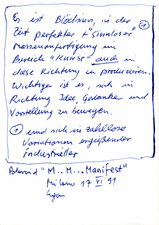 Es ist Blödsinn, in der
Zeit perfekter "Sinnloser"
Massenanfertigung im
Bereich "Kunst" auch in
diese Richtung zu produzieren.
Wichtiger ist es, sich in
Richtung Idee, Gedanke und
Vorstellung zu bewegen.
und sich in zahllose
Variationen ergießender
industrieller
"M.. M... Manifest"
Milano 17 VI 91